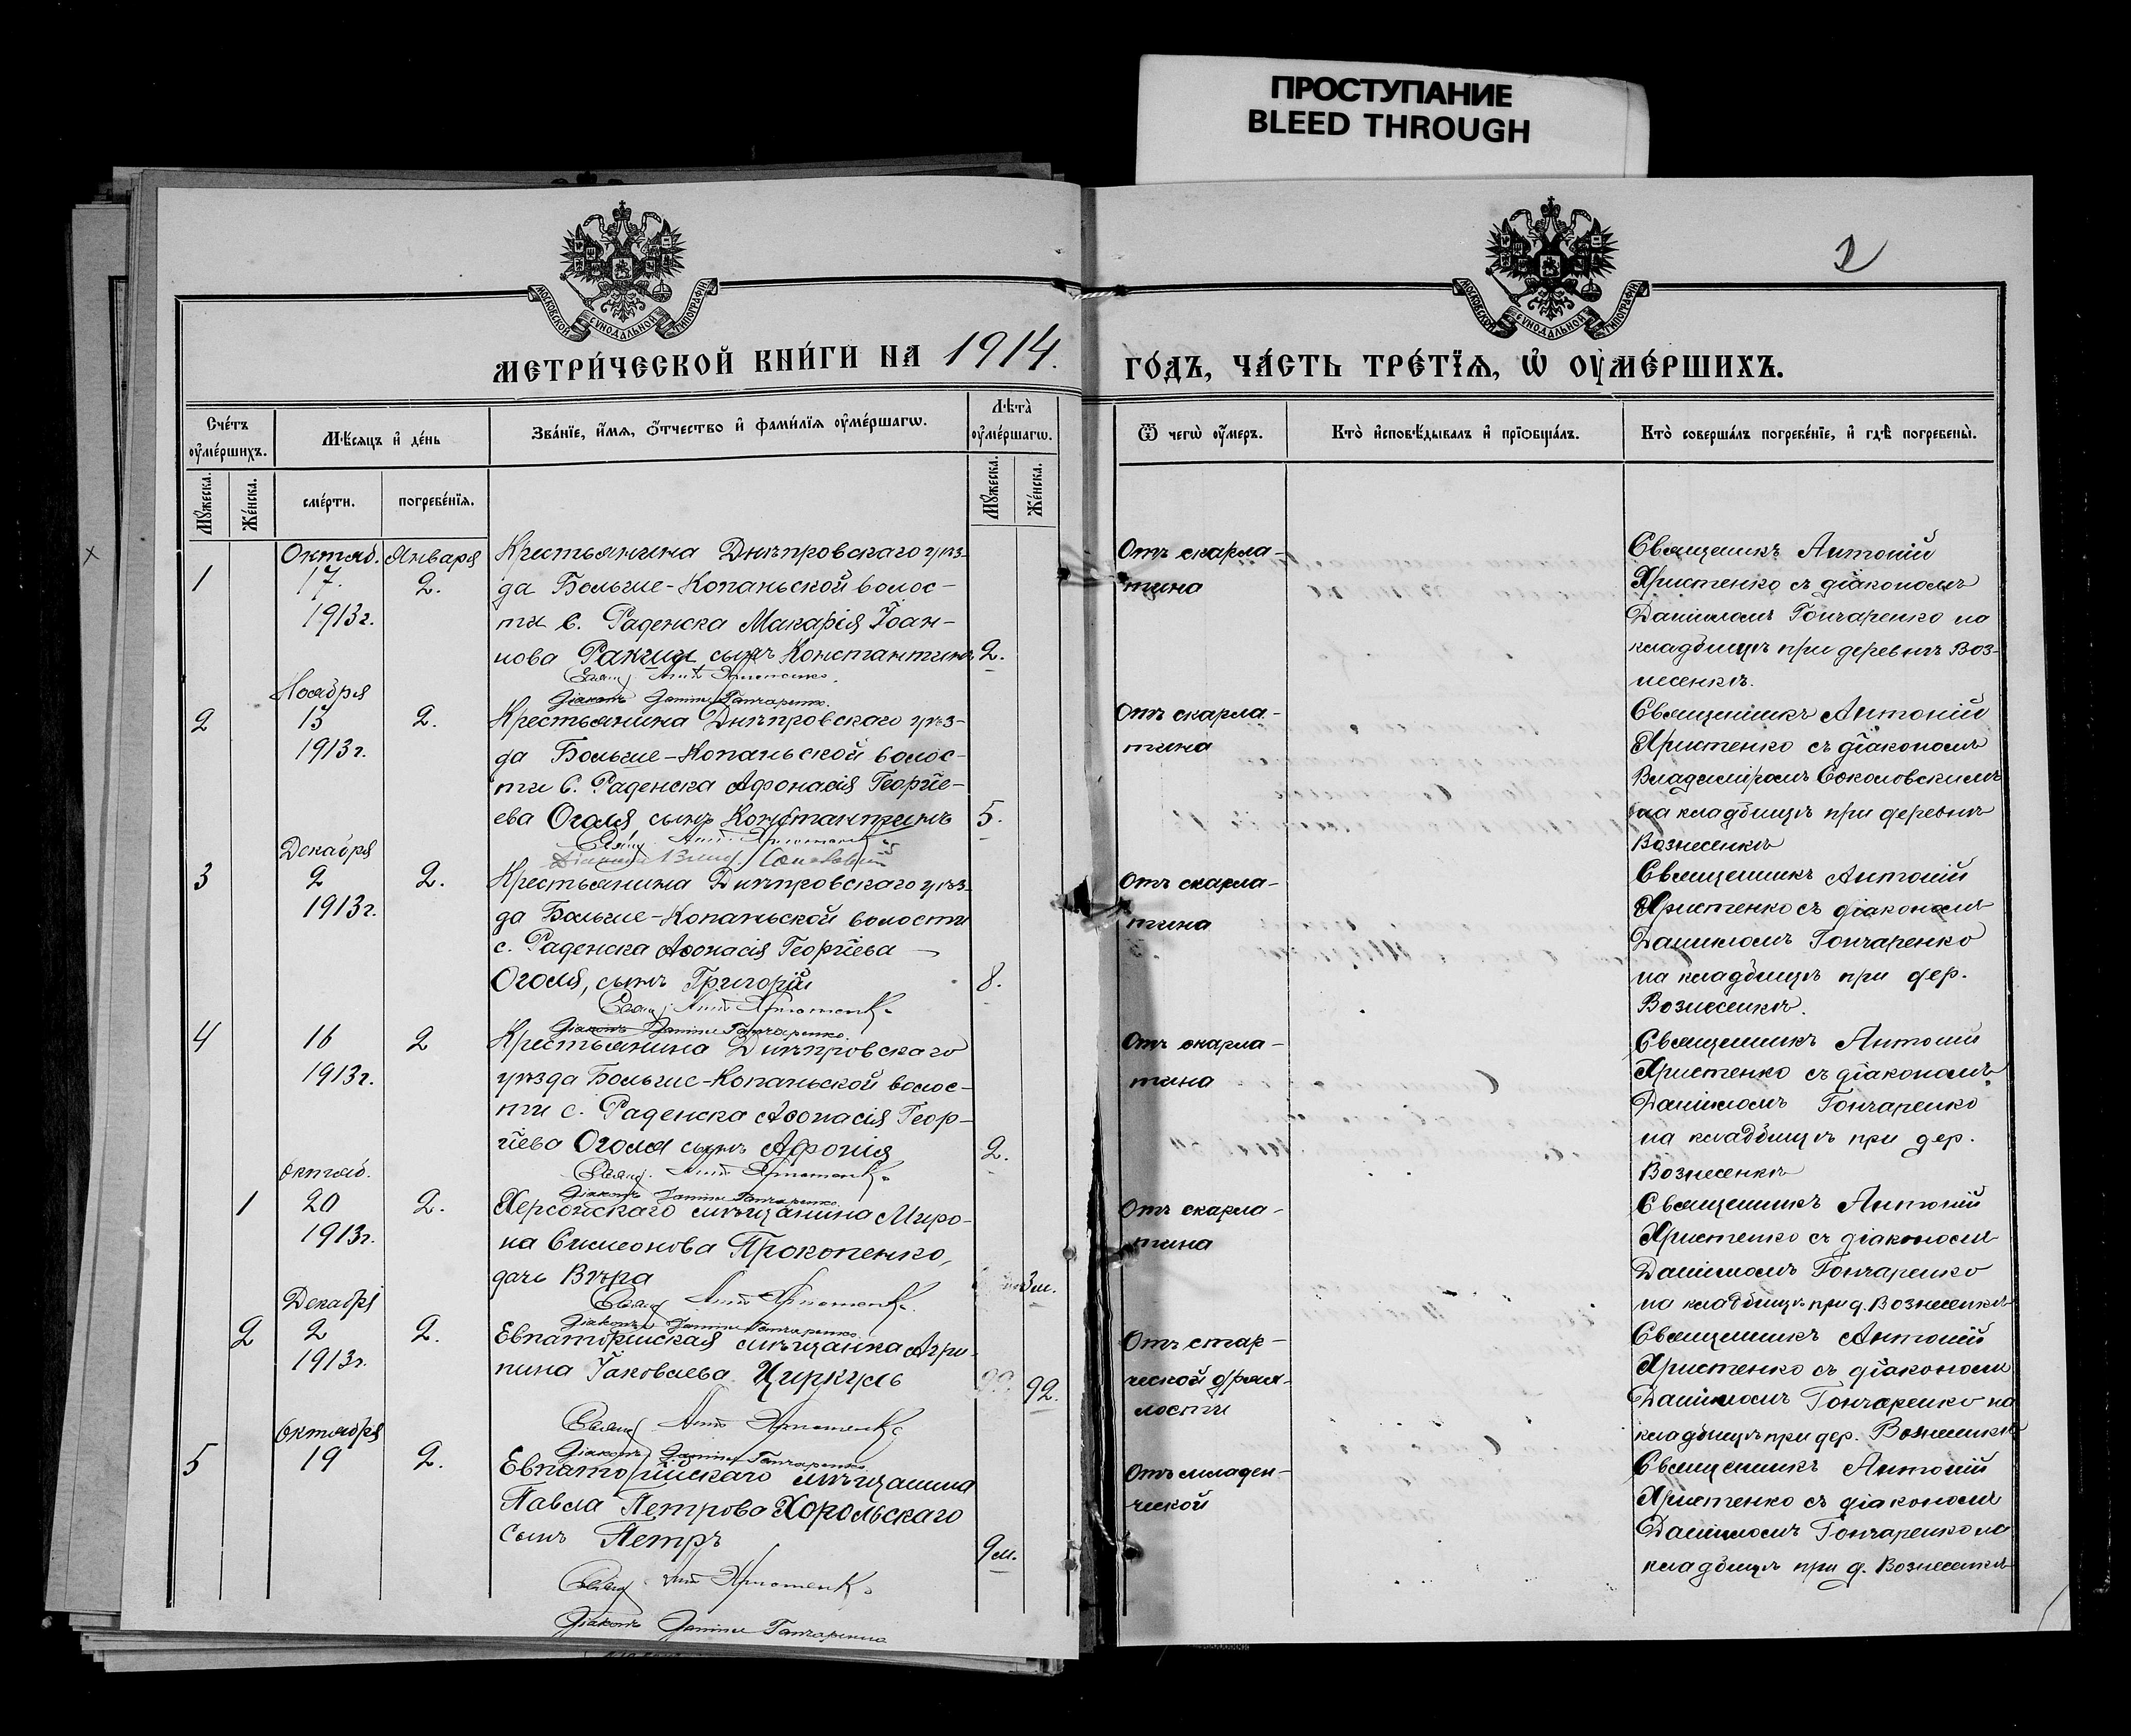 ПРОСТУПАНИЕ
BLEED THROUGH
2
МОСКОВСКОЙ СѴНОДАЛЬНОЙ ТИПОГРАФІИ
МОСКОВСКОЙ СѴНОДАЛЬНОЙ ТИПОГРАФІИ
МЕТРИ́ЧЕСКОЙ КНИ́ГИ НА 1914.
ГО́ДЪ, ЧА́СТЬ ТРЕ́ТЇѦ, Ѡ҆ ОУ҆МЕ́РШИХЪ.
Сче́тъ оу҆ме́ршихъ.
Мѣ́сяцъ и҆ де́нь
Зва́нїе, и҆́мѧ, ѻ҆́тчество и҆ фами́лїѧ оу҆ме́ршагѡ.
Лѣта̀ оу҆ме́ршагѡ.
Ѿ чегѡ̀ оу҆́меръ.
Кто̀ и҆сповѣ́дывалъ и҆ прїѡбща́лъ.
Кто̀ соверша́лъ погребе́нїе, и҆ гдѣ̀ погребены̀.
Мꙋ́жеска.
Же́нска.
сме́рти.
погребе́нїѧ.
Мꙋ́жеска.
Же́нска.
Октяб. Января
1 17. 2.
1913г.
Крестьянина Днѣпровскаго уѣз-
да Больше-Копаньской волос-
ти с. Раденска Макарія Іоан-
нова Ракши сынъ Константинъ 2.
Свящ. Ант. Христенко.
Діаконъ Даниилъ Гончаренко.
Отъ скарла-
тина
Священникъ Антоній
Христенко съ діакономъ
Даніиломъ Гончаренко на
кладбищѣ при деревнѣ Воз-
несенкѣ.
Ноября
2 13 2.
1913г.
Крестьянина Днѣпровскаго уѣз-
да Больше-Копаньской волос-
ти с. Раденска Афонасія Георгіе-
ева Оголя сынъ Константинъ 5.
Свящ. Ант. Христенко
Діаконъ Влад. Соколовскій
Отъ скарла-
тина
Священникъ Антоній
Христенко съ діакономъ
Владиміромъ Соколовскимъ
на кладбищѣ при деревнѣ
Вознесенкѣ
Декабря
3 2 2.
1913г.
Крестьянина Днѣпровскаго уѣз-
да Больше-Копаньской волости
с. Раденска Аѳонасія Георгіева
Оголя, сынъ Григорій 8.
Свящ. Ант. Христенко
Діаконъ Даниилъ Гончаренко.
Отъ скарла-
тина
Священникъ Антоній
Христенко съ діакономъ
Даніиломъ Гончаренко
на кладбищѣ при дер.
Вознесенкѣ.
4 16 2
1913г.
Крестьянина Днѣпровскаго
уѣзда Больше-Копаньской волос-
ти с. Раденска Аѳонасія Геор-
гіева Оголя сынъ Афонія 2.
Свящ. Ант. Христенко
Діаконъ Даниилъ Гончаренко
Отъ скарла-
тина
Священникъ Антоній
Христенко съ діакономъ
Даніиломъ Гончаренко
на кладбищѣ при дер.
Вознесенкѣ
Октяб.
1 20 2.
1913г.
Херсонскаго мѣщанина Миро-
на Симеонова Прокопенко,
дочь Вѣра 3м.
Свящ. Ант. Христенко
Діаконъ Даниилъ Гончаренко
Отъ скарла-
тина
Священникъ Антоній
Христенко съ діакономъ
Даніиломъ Гончаренко
на кладбищѣ при д. Вознесенкѣ
Декабря
2 2 2.
1913г.
Евпаторійская мѣщанка Агри-
пина Іаковлева Циркуль 92.
Свящ. Ант. Христенко
Діаконъ Даниилъ Гончаренко
Отъ стар-
ческой дрях-
лости
Священникъ Антоній
Христенко съ діакономъ
Даніиломъ Гончаренко на
кладбищѣ при дер. Вознесенкѣ
Октября
5 19 2.
Евпаторійскаго мѣщанина
Павла Петрова Хорольскаго
сынъ Петръ 9м.
Свящ. Ант. Христенко
Діаконъ Даниилъ Гончаренко
Отъ младен-
ческой
Священникъ Антоній
Христенко съ діакономъ
Даніиломъ Гончаренко на
кладбищѣ при д. Вознесенкѣ